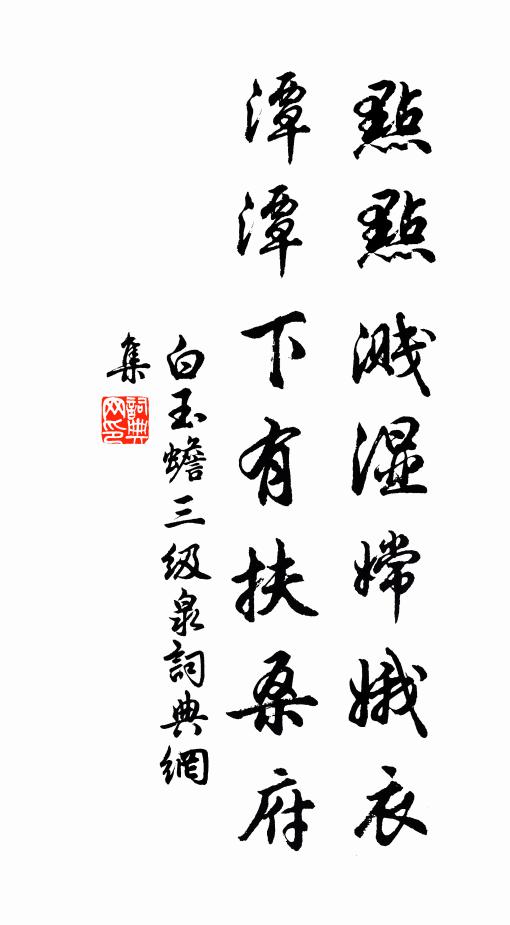 點點濺濕嫦娥衣
潭潭下有扶桑府
白玉蟾三級泉詞典網
集
詞典網印